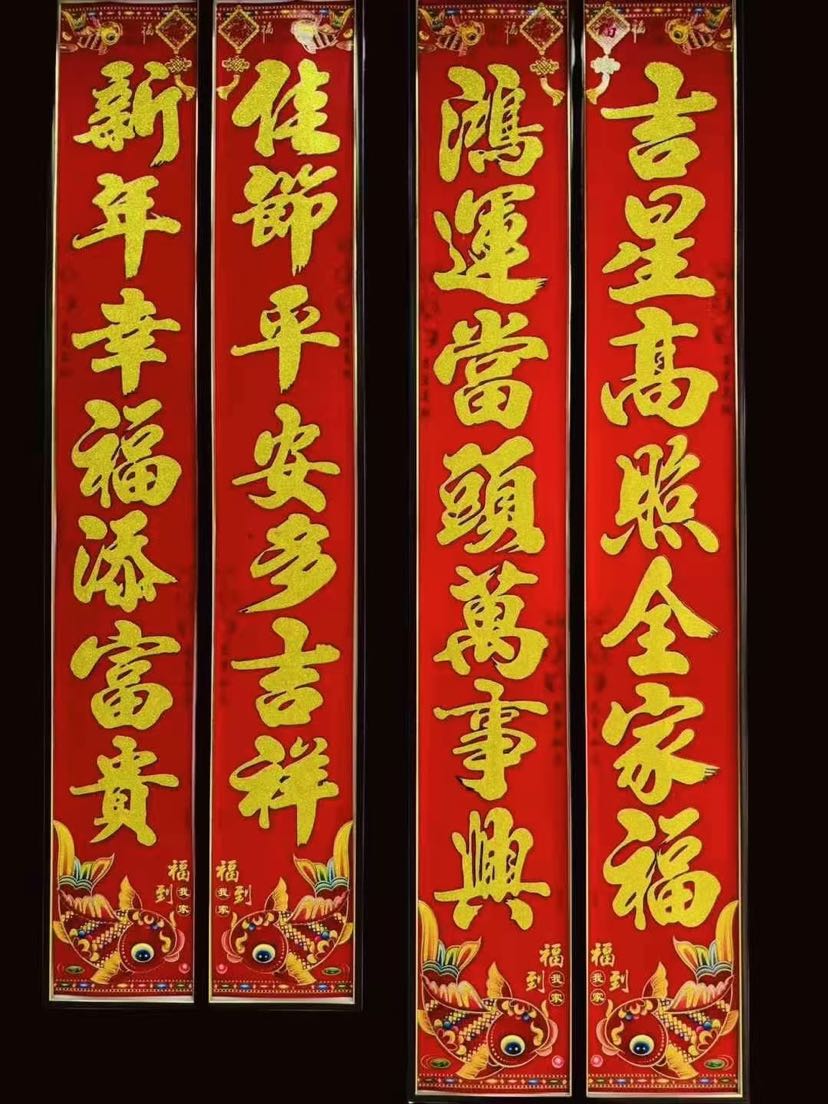 吉星高照全家福
鴻運當頭萬事興
佳節平安多吉祥
新年幸福添富貴
福到我家
福到我家
福到我家
福到我家
福
福
福
福